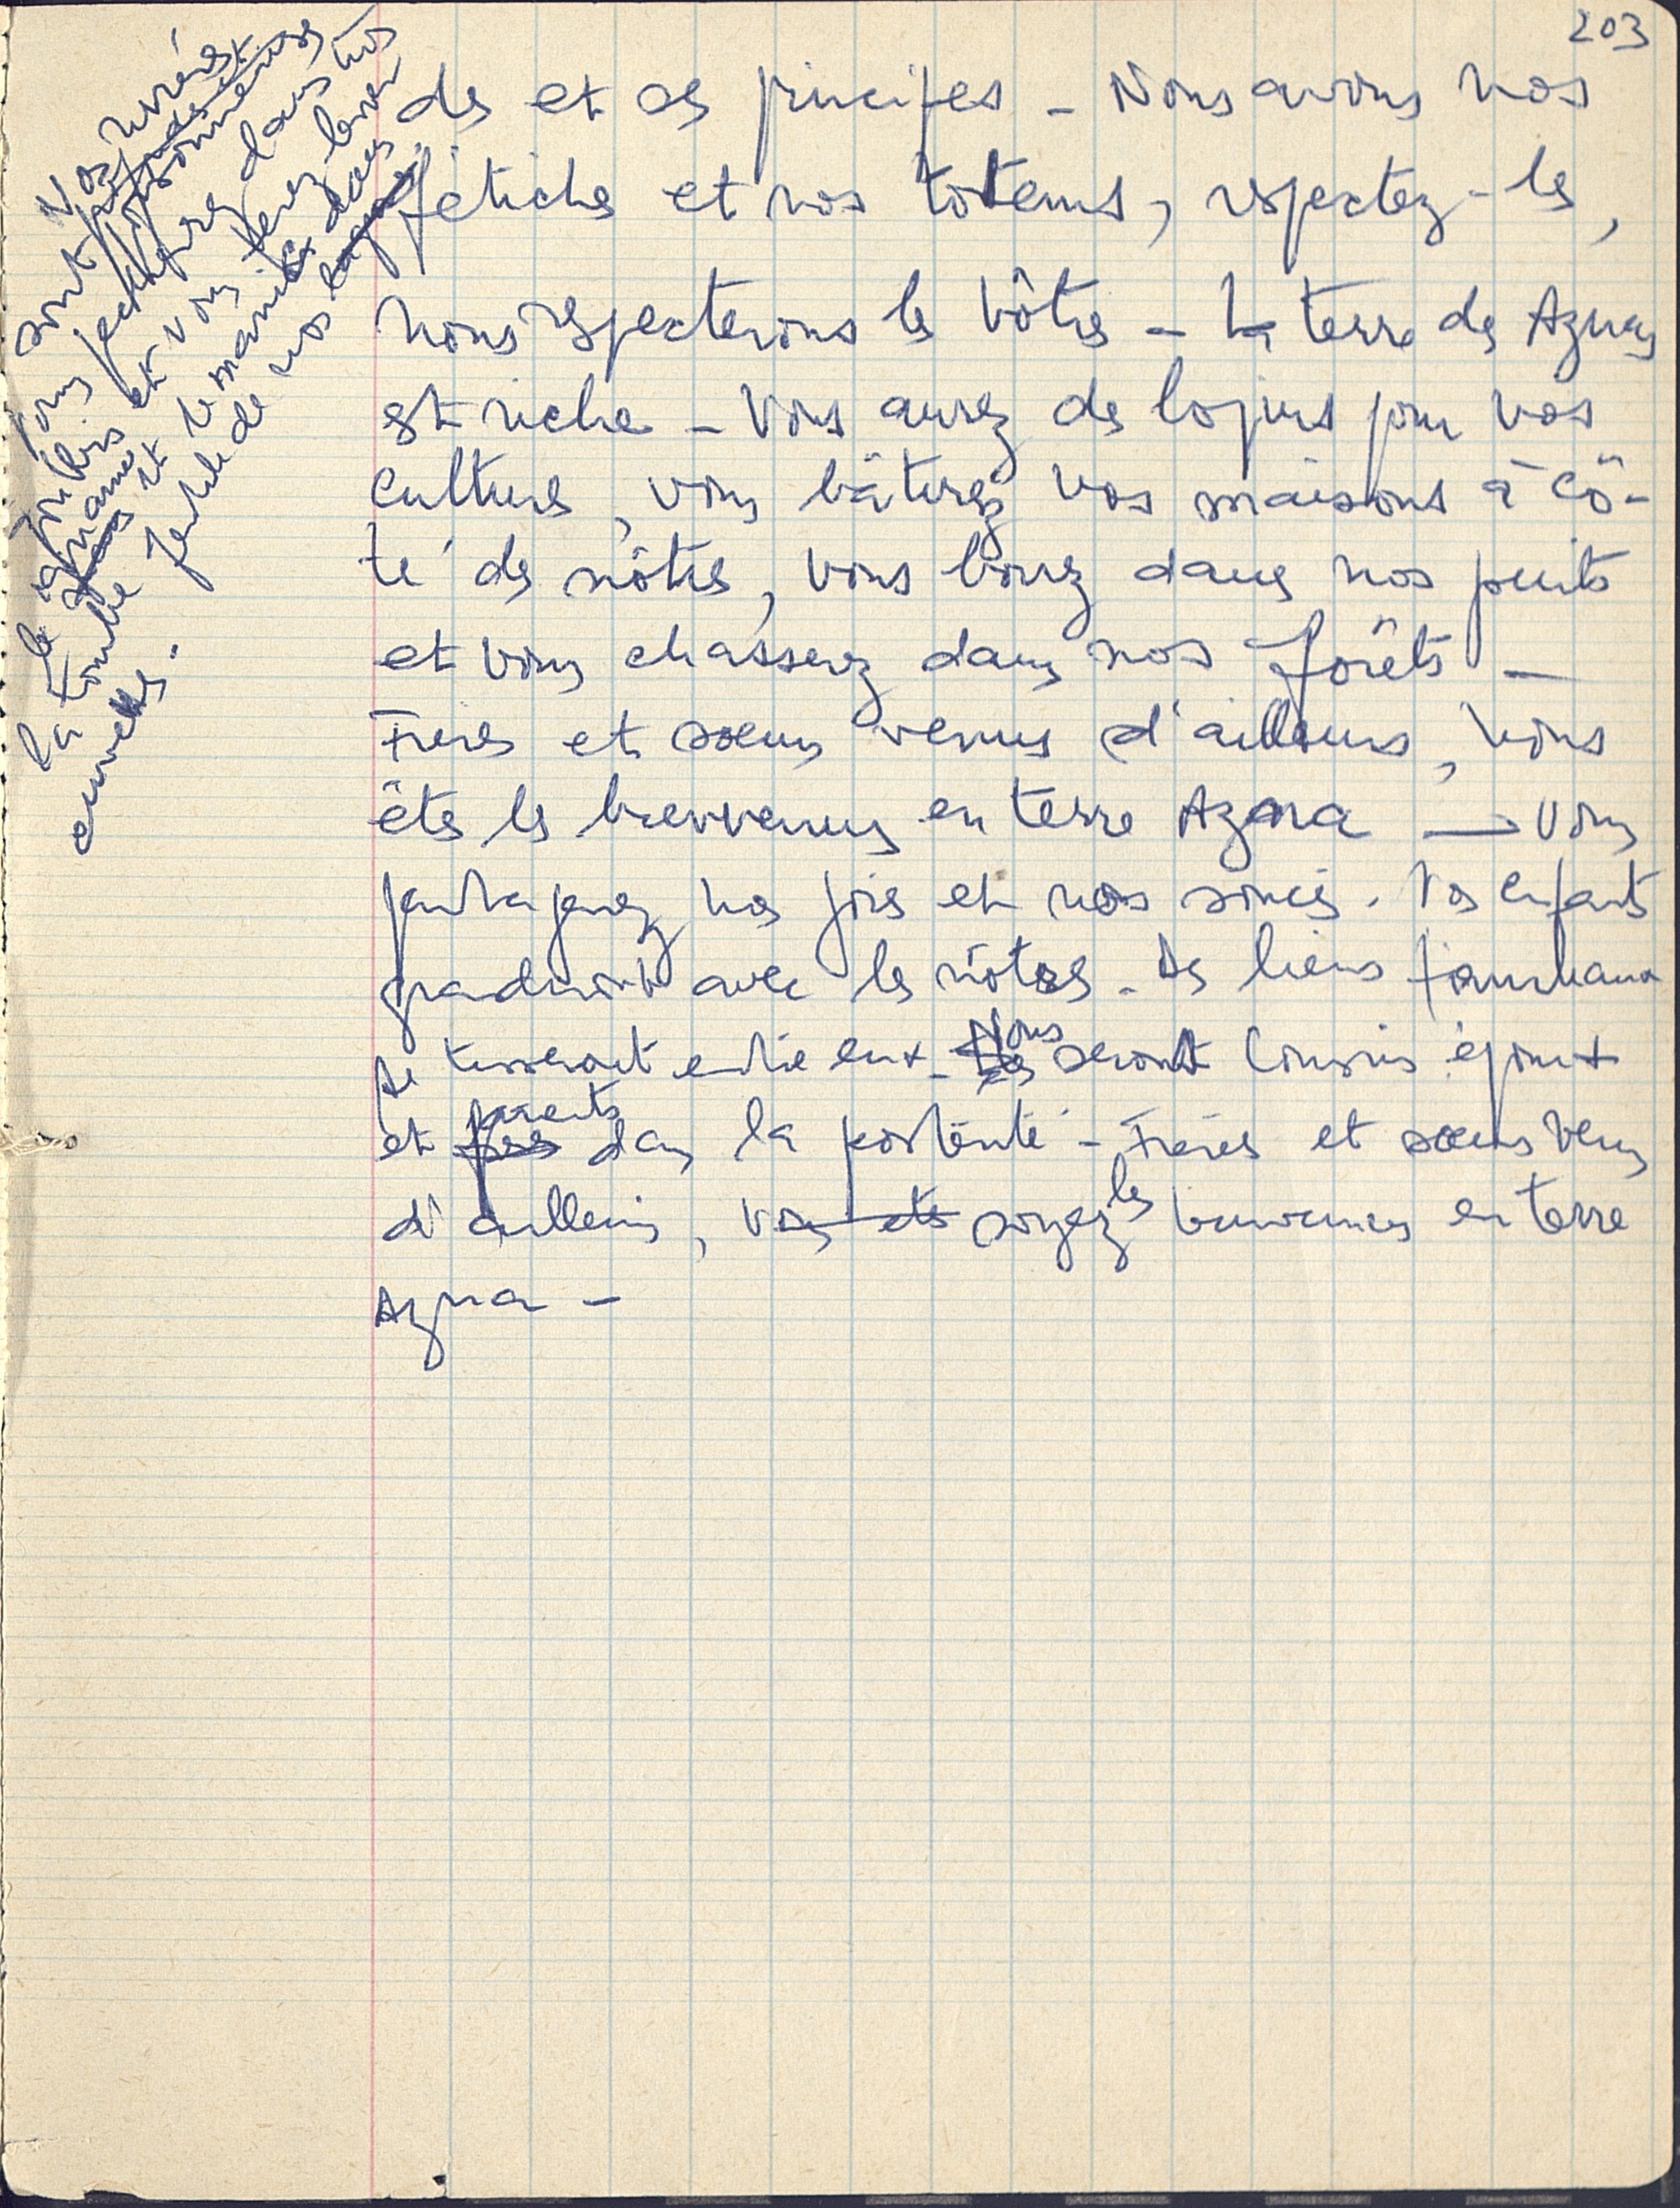 203
des et ses principes - Nous avons nos
fétiches et nos totems, respectez-les,
nous respecterons les vôtres - La terre des Aznas
est riche - Vous aurez des lopins pour vos
cultures, vous bâtirez vos maisons à cô-
té des nôtres, vous boirez dans nos puits
et vous chasserez dans nos forêts -
Frères et soeurs venus d'ailleurs, vous
êtes les bienvenus en terre Azna - Vous
partagerez nos joies et nos soucis. Vos enfants
grandiront avec les nôtres - Des liens familiaux
se tisseront entre eux - Nous seront cousins époux
et parents dans la postérité - Frères et soeurs venus
d'ailleurs, vous êtes soyez les bienvenus en terre
Azna -
Vos
sont
dans nos
et vous ferez lever
le manioc dans
la tombe fertile de nos